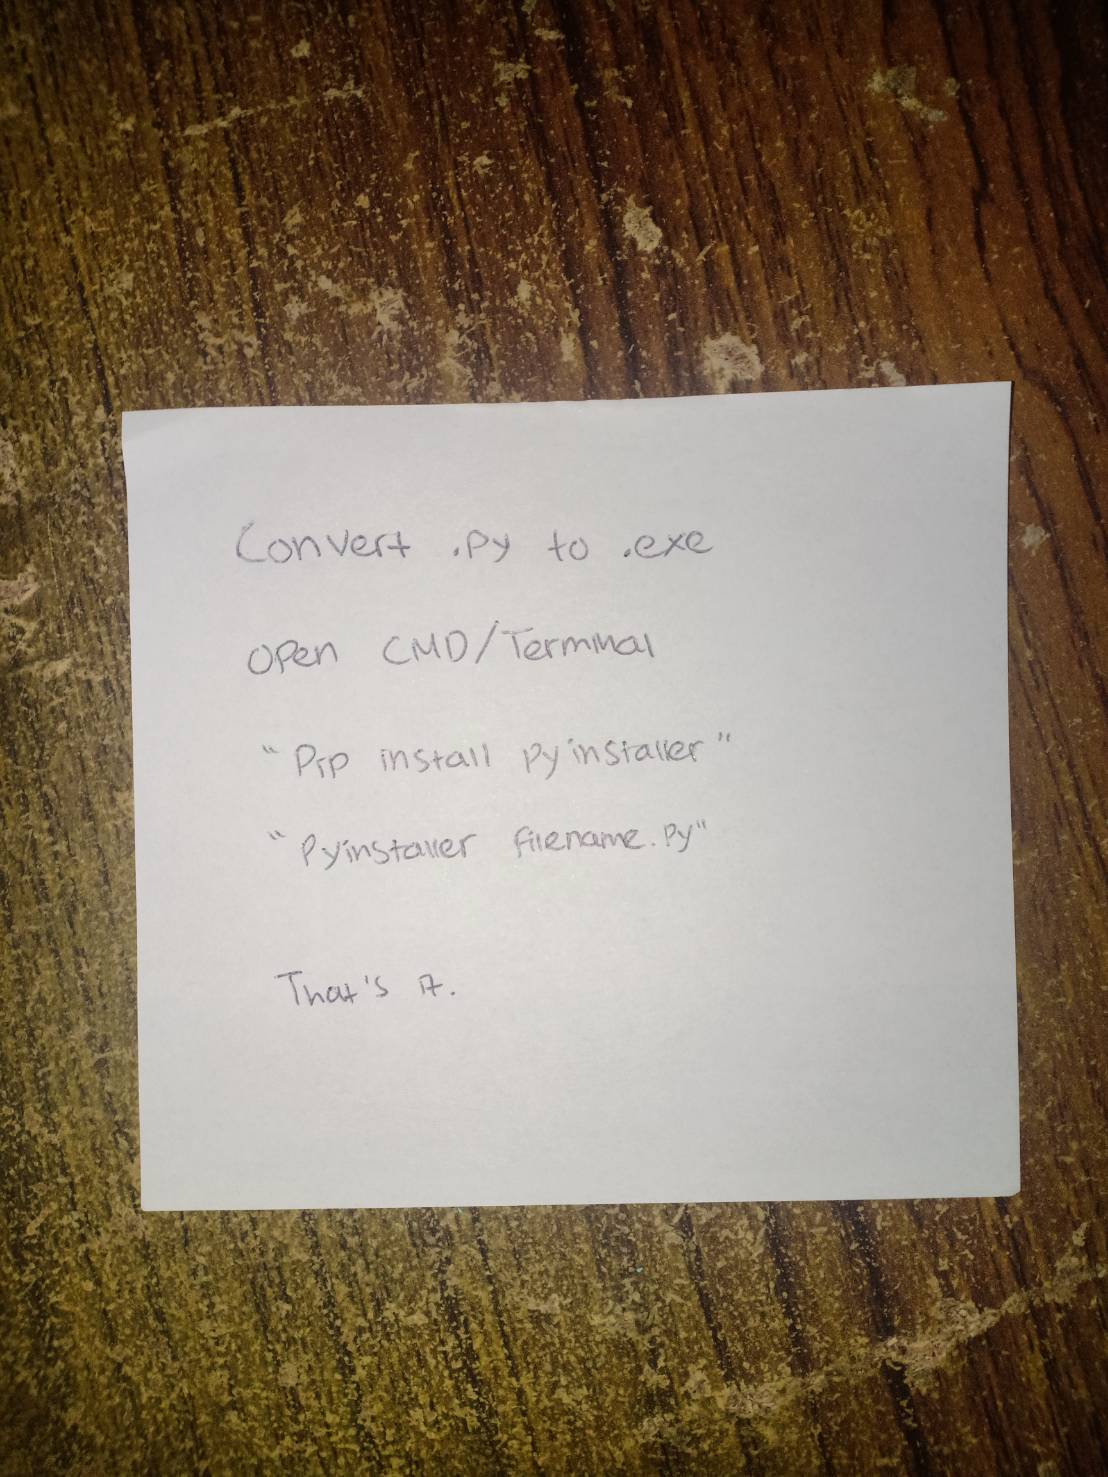 Convert .py to .exe
open CMD/Terminal
"Pip install pyinstaller"
"Pyinstaller filename.py"
That's it.